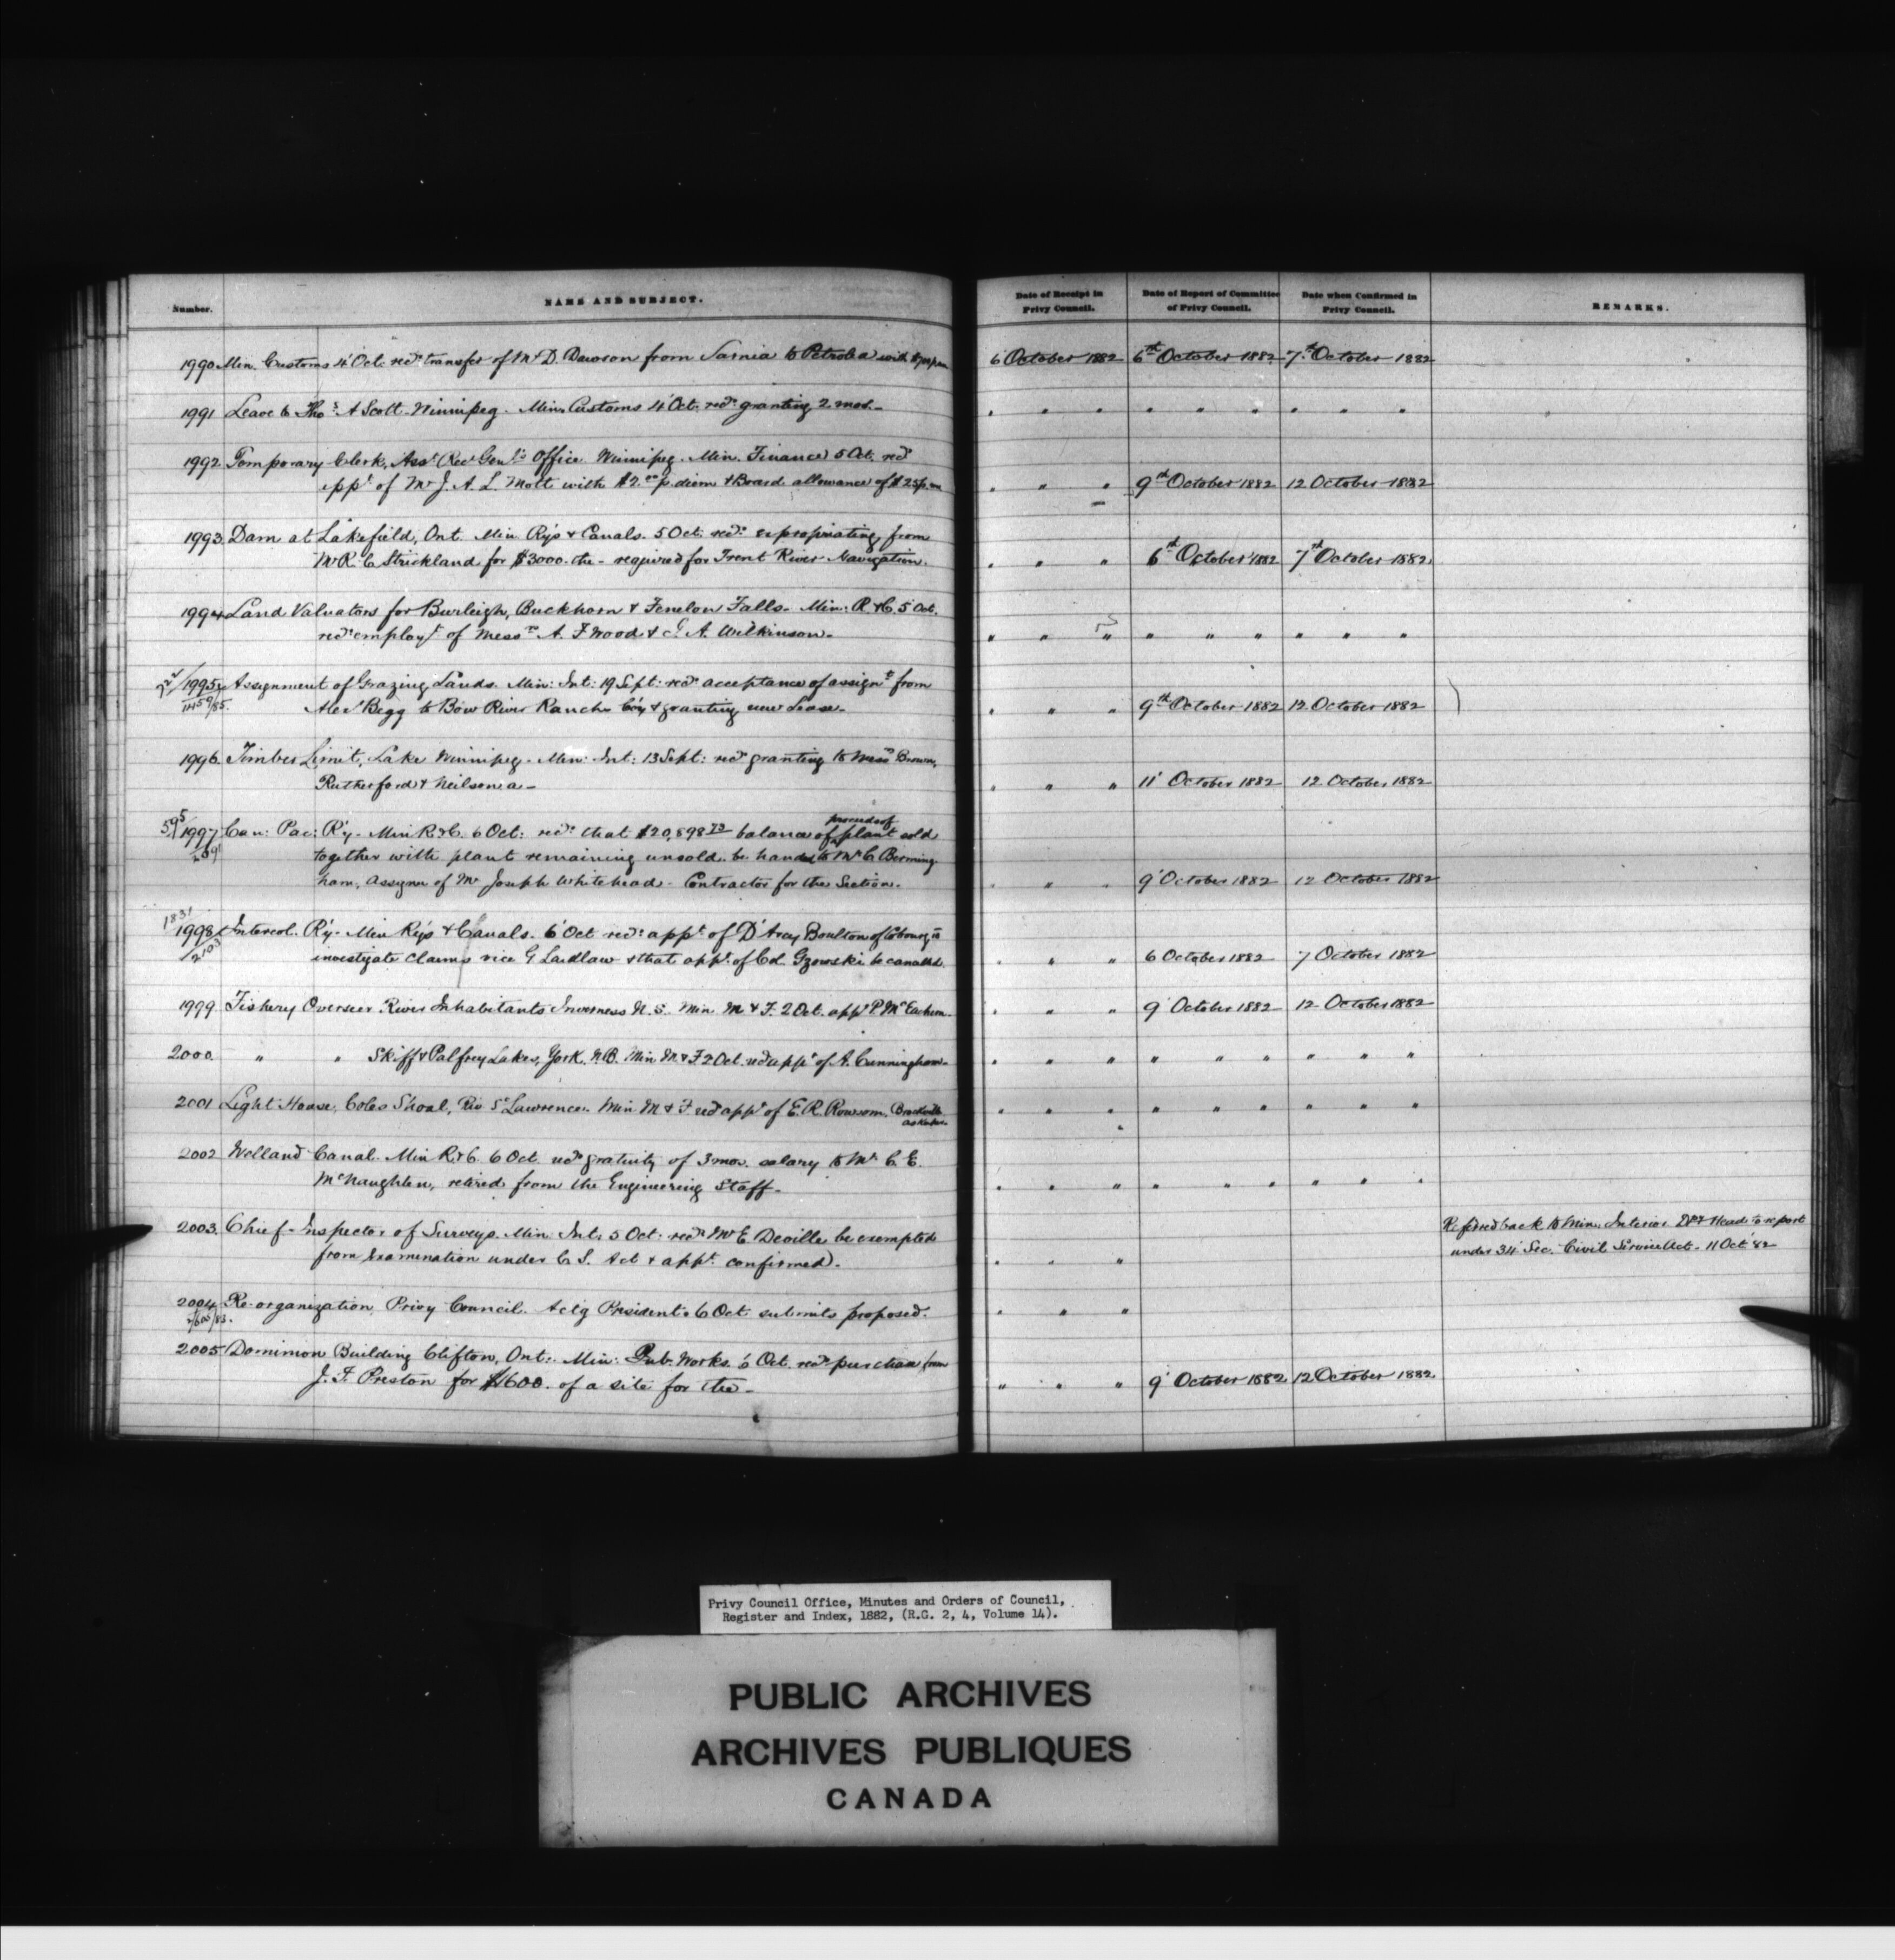 Number. NAME AND SUBJECT. Date of Receipt in Privy Council. Date of Report of Committee of Privy Council. Date when Confirmed in Privy Council. REMARKS.
1990 Min. Customs 4 Oct. recds transfer of Mr D. Dawson from Sarnia to Petrolea with 6 October 1882 6th October 1882 7th October 1882
1991 Leave to Thos A Scott. Winnipeg. Min. Customs 4 Oct. recds granting 2 mos. " " " " " " " " "
1992 Temporary Clerk, Asst Recr Genl's Office Winnipeg. Min. Finance 5 Oct. recds
appt of Mr J. A. L. Mott with $2.00 p. diem & Board allowance of $25 p. m " " " 9th October 1882 12 October 1882
1993 Dam at Lakefield, Ont. Min Rys & Canals. 5 Oct. recds expropriating from
Mr R. C Strickland for $3000. the - required for Trent River Navigation. " " " 6th October 1882 7th October 1882
1994 Land Valuators for Burleigh, Buckhorn & Fenelon Falls. Min: R & C 5 Oct.
recds employt of Messrs A. F Wood & A. Wilkinson. " " " " " " " " "
1995 Assignment of Grazing Lands. Min: Int: 19 Sept: recds acceptance of assignt from
Alexr Begg to Bow River Ranche Coy & granting new Lease. " " " 9th October 1882 12 October 1882
1996 Timber Limit, Lake Winnipeg. Min: Int: 13 Sept: recds granting to Messrs Brown,
Rutherford & Neilson a - " " " 11 October 1882 12 October 1882
595 1997 Can: Pac: Ry. Min R & C. 6 Oct: recds that $20,898 73 balance of proceeds of plant sold
together with plant remaining unsold be handed to Mr C Berming
ham, Assignee of Mr Joseph Whitehead - Contractor for the Section. " " " 9 October 1882 12 October 1882
1831
1998 Intercol. Ry. Min Rys & Canals. 6 Oct recds appt of D'Arcy Boulton of Cobourg to
2103 investigate Claims vice G Laidlaw & that appt of Col Gzowski be cancelled. " " " 6 October 1882 7 October 1882
1999 Fishery Overseer River Inhabitants Inverness N. S. Min M & F. 2 Oct. appt P. McEachern. " " " 9 October 1882 12 October 1882
2000 " " Skiff & Palfrey Lakes, York. N.B. Min M & F 2 Oct. recds appt of A. Cunningham. " " " " " " " " "
2001 Light House, Coles Shoal, Riv St Lawrence. Min M & F recds appt of E. R. Rowsom, Brockville " " " " " " " " "
as Keeper.
2002 Welland Canal. Min R & C. 6 Oct. recds gratuity of 3 mos. salary to Mr C E.
McNaughten, retired from the Engineering Staff. " " " " " " " " "
2003. Chief Inspector of Surveys. Min Int: 5 Oct. recds Mr E. Deville be exempted Referred back to Min: Interior Dpt Head to report
from Examination under C S. Act & appt confirmed. " " " under 34 Sec. Civil Service Act - 11 Oct '82
2004 Re-organization, Privy Council. Actg President. 6 Oct. submits proposed. " " "
2005 Dominion Building Clifton, Ont. Min: Pub. Works. 6 Oct. recds purchase from
J. F. Preston for $1600. of a site for the - " " " 9 October 1882 12 October 1882
Privy Council Office, Minutes and Orders of Council,
Register and Index, 1882, (R.G. 2, 4, Volume 14).
PUBLIC ARCHIVES
ARCHIVES PUBLIQUES
CANADA